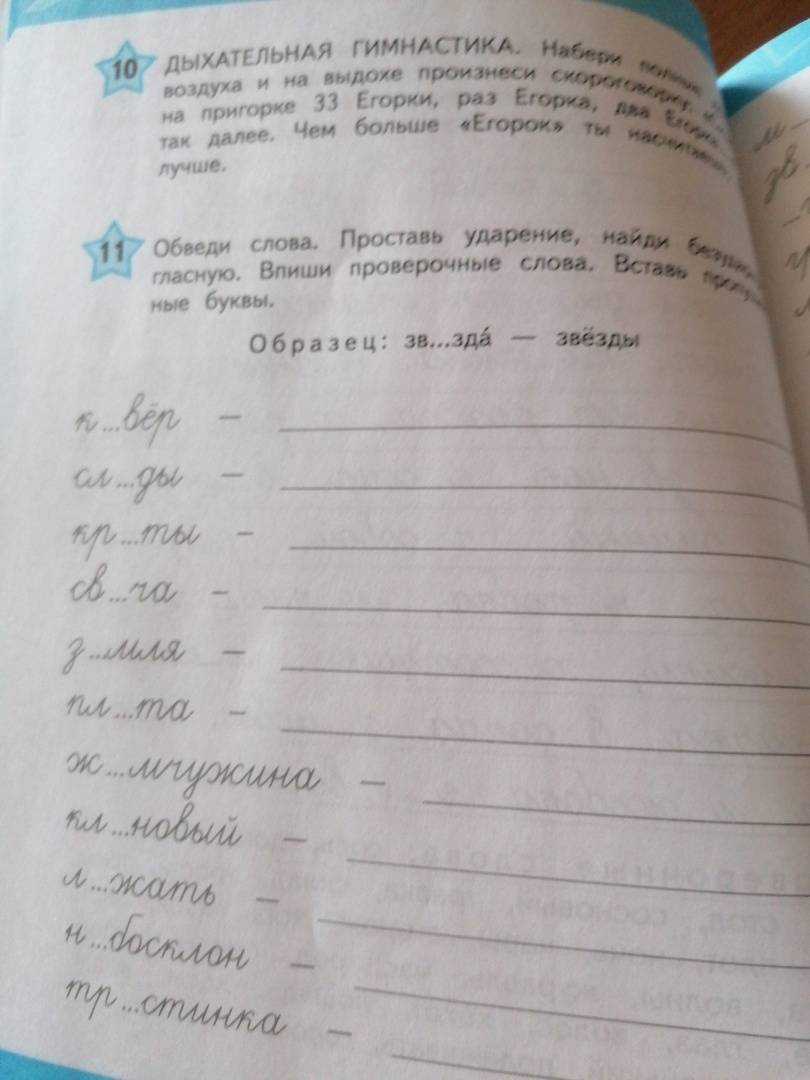 10 ДЫХАТЕЛЬНАЯ ГИМНАСТИКА. Набери полные
воздуха и на выдохе произнеси скороговорку:
на пригорке 33 Егорки, раз Егорка, два Егорка
так далее. Чем больше «Егорок» ты насчитаешь
лучше.
11 Обведи слова. Проставь ударение, найди
гласную. Впиши проверочные слова. Вставь
ные буквы.
Образец: зв...зда́ — звёзды
к...вёр –
сл...ды –
кр...ты –
св...ча –
з...мля –
пл...та –
ж...мчужина –
кл...новый –
л...жать –
н...босклон –
тр...стинка –